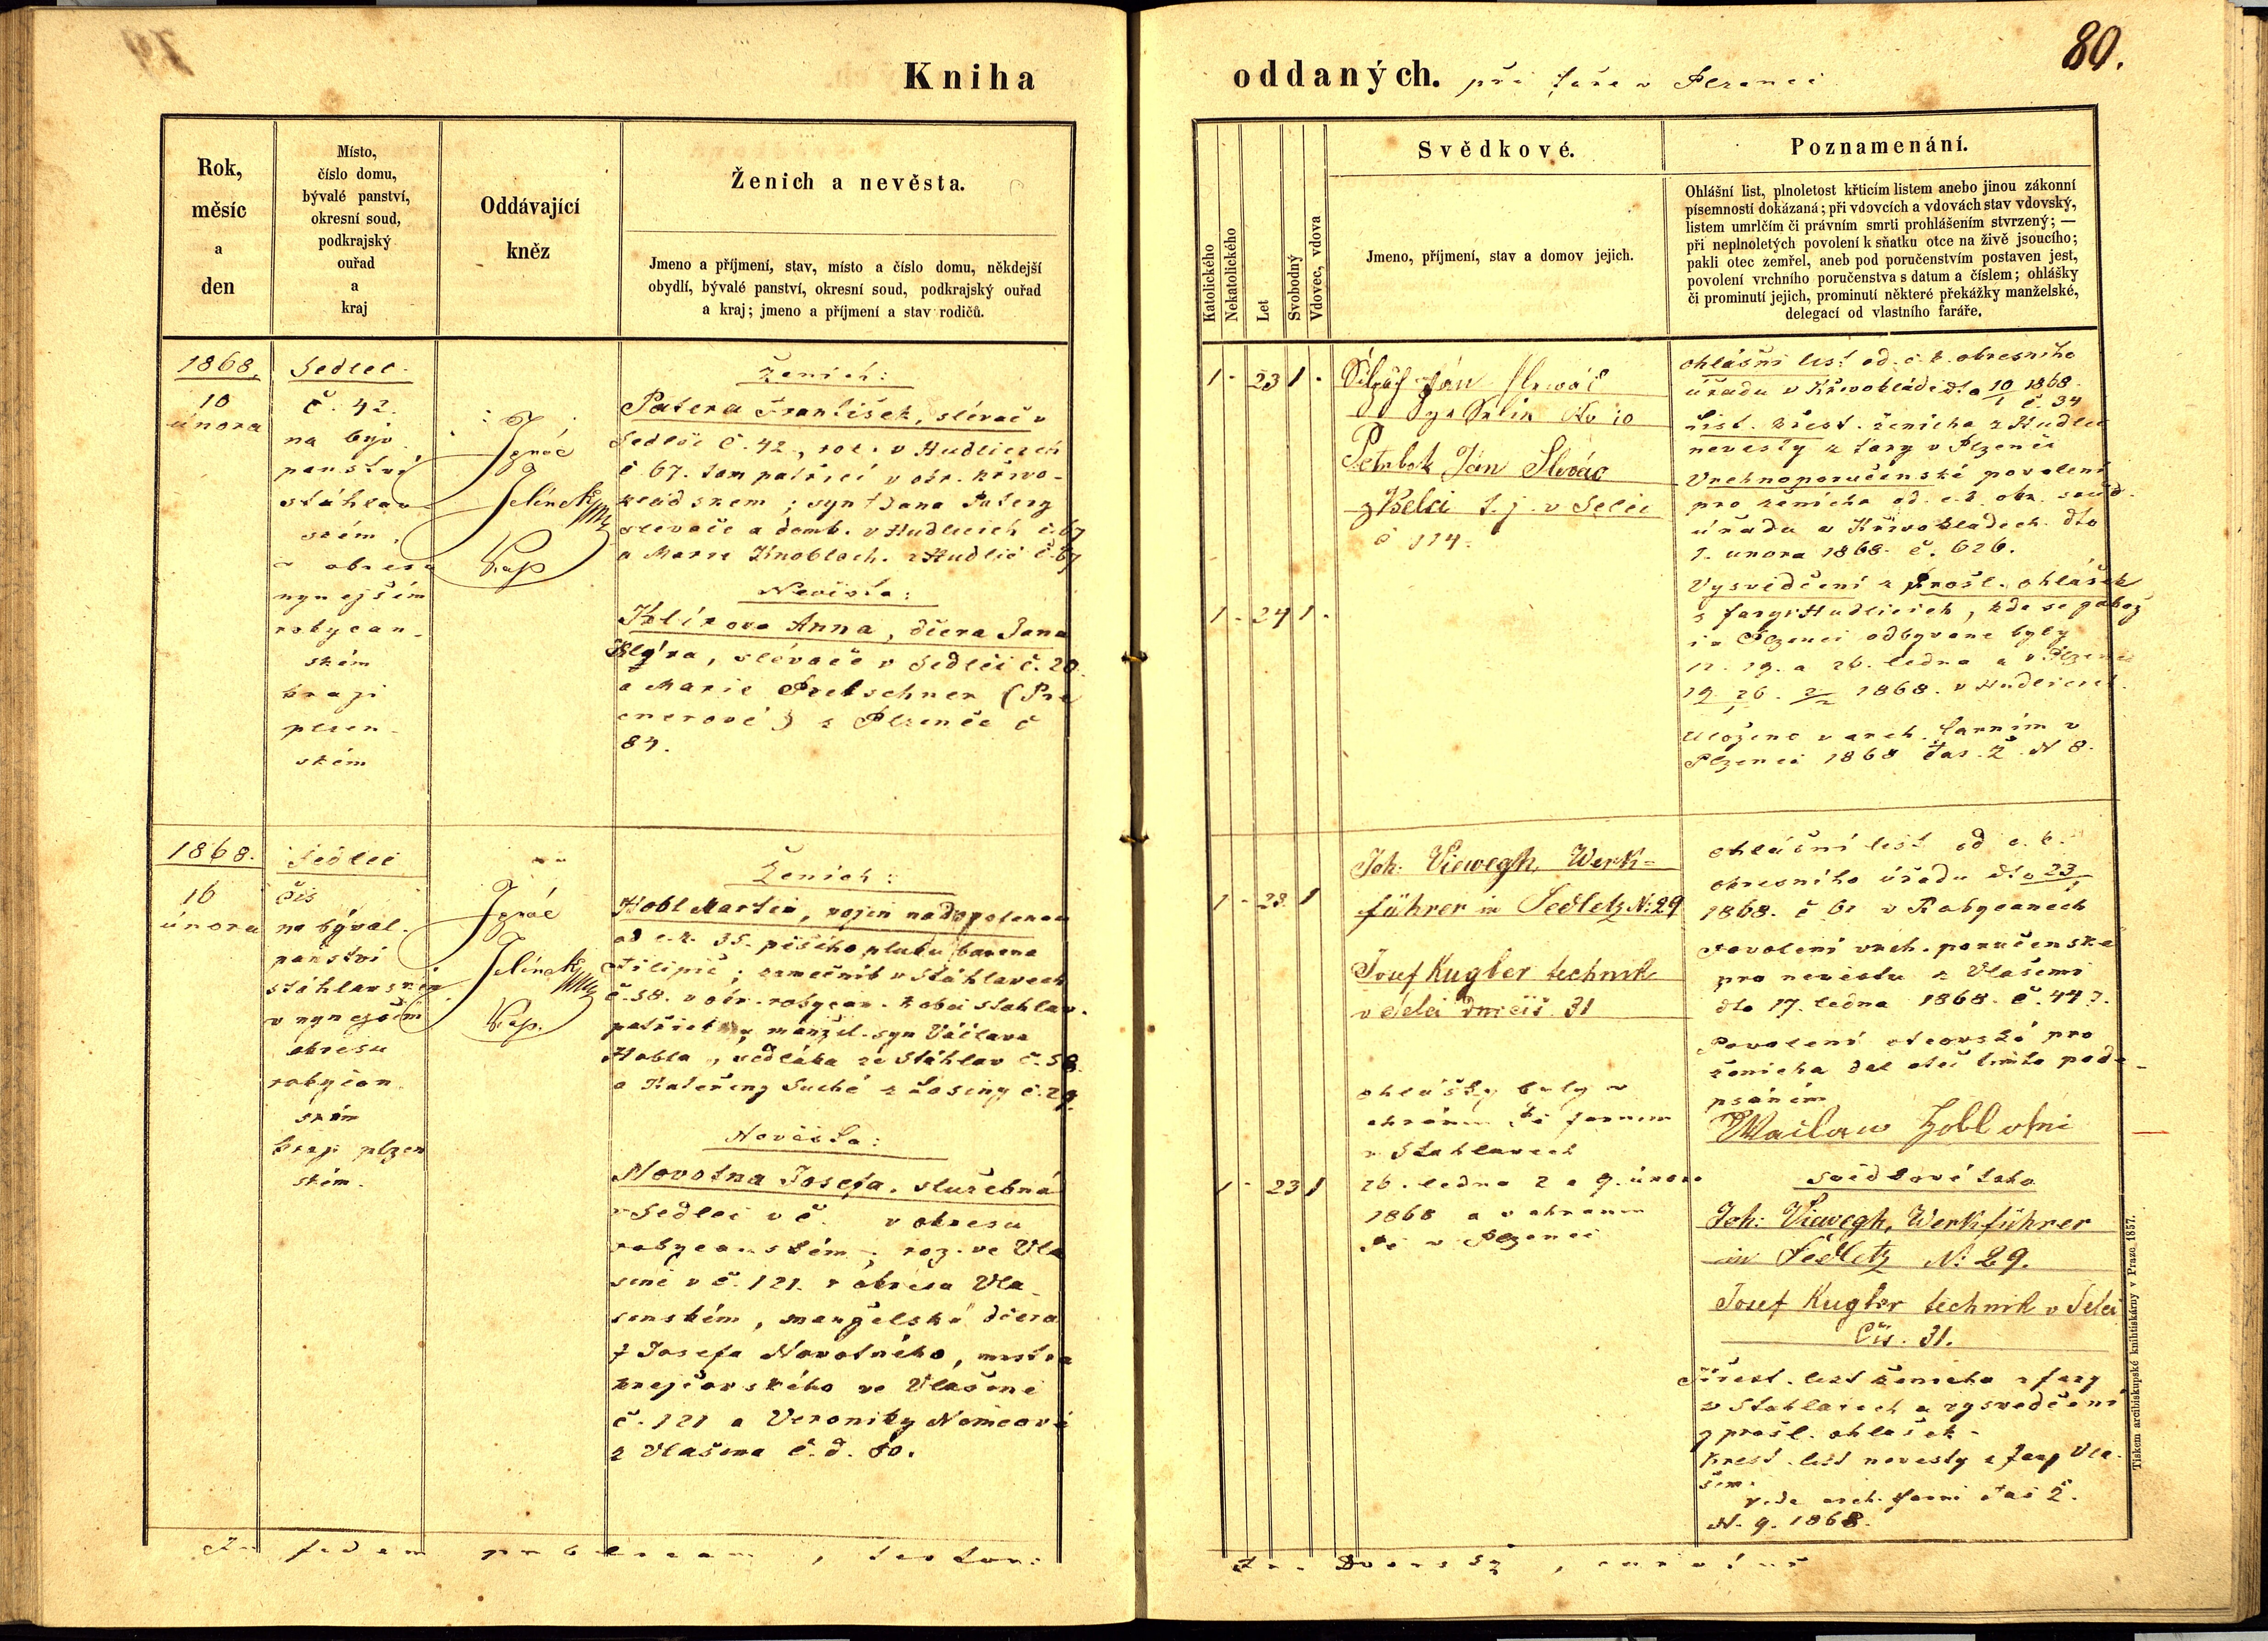 80.
Kniha
oddaných. při faře v Plzenci
Rok,
měsíc
a
den
Místo,
číslo domu,
bývalé panství,
okresní soud,
podkrajský
ouřad
a
kraj
Oddávající
kněz
Ženich a nevěsta.
Jmeno a příjmení, stav, místo a číslo domu, někdejší
obydlí, bývalé panství, okresní soud, podkrajský ouřad
a kraj; jmeno a příjmení a stav rodičů.
Katolického
Nekatolického
Let
Svobodný
Vdovec, vdova
Svědkové.
Jmeno, příjmení, stav a domov jejich.
Poznamenání.
Ohlášní list, plnoletost křticím listem anebo jinou zákonní
písemností dokázaná; při vdovcích a vdovách stav vdovský,
listem umrlčím či právním smrti prohlášením stvrzený; —
při neplnoletých povolení k sňatku otce na živě jsoucího;
pakli otec zemřel, aneb pod poručenstvím postaven jest,
povolení vrchního poručenstva s datum a číslem; ohlášky
či prominutí jejich, prominutí některé překážky manželské,
delegací od vlastního faráře.
1868.
10
února
Sedlec
č. 42.
na býv.
panství
stáhlav-
ském,
v okresu
nynejším
rokycan-
ském
kraji
plzen-
ském
Ignác
Jelínek
Kap
Ženich:
Patera František, slévač v
Sedlci č. 42, roz. v Hudlicích
č 67. tam patřící v okr. křivo-
kládském; syn † Jana Patery
slevače a domk. v Hudlicích č. 67
a Marie Knobloch. z Hudlic č. 67
Nevěsta:
Klírova Anna, dcera Jana
Klýra, slévače v Sedlci č. 20.
a Marie Pretschner (Pre
cnerové) z Plzence č
84.
1 - 23 1 -
1 - 24 1 -
Jan Slevač
Petrbok Ján Slevác
z Selci t. j. v Selci
č 114.
ohlášní list od c. k. okresního
úřadu v Křivokládě dto 10/1 1868.
č. 34
List. křest. ženicha z Hudlic
nevesty z fary v Plzenci
Vrchnoporučenské povolení
pro ženicha od c. k. okr. soud.
úřadu v Křivokladech dto
1. unora 1868. č. 626.
Vysvědčení z prošl. ohlášek
z fary v Hudlicich, kde se
i v Plzenci odbyvane byly
12. 19. a 26. ledna a v Plzenci
19. 26. 2/2 1868. v Hudlicich.
Uloženo v arch. farním v
Plzenci 1868 fas. Ž. N 8.
1868.
16
února
Sedlec
čis
na býval.
panství
stáhlavském
v nynejším
okresu
rokycan
ském
kraji plzen
ském.
Ignác
Jelínek
Kap.
Ženich:
Hobl Martin, vojín na dovolenou
od c. k. 35. pěšího pluku barona
Filipič; zamečník v Stáhlavech
č. 58. v okr. rokycan. k obci Stahlav.
patřící; manžel. syn Václava
Hobla, sedláka ze Stáhlav č. 58.
a Kateřiny Suché z Losiny č. 29.
Nevěsta:
Novotna Josefa, služebná
v Sedlci v č. v okresu
rokycanském, roz. ve Vla
šimě v č. 121. v okresu Vla-
šimském, manželská dcera
† Josefa Novotného, mistra
krejčovského ve Vlašimi
č. 121 a Veroniky Němcové
z Vlašima č. d. 80.
1 - 28. 1
1 - 23 1
Joh: Viewegh, Werk-
führer in Sedletz N: 29
Josef Kugler technik
v Selci čís. 31
ohlášky byly v
chrámu Pá farnim
v Stahlavech
26. ledna 2 a 9. února
1868 a v chramu
Pá v Plzenci
ohlášní list od c. k.
okresního úřadu dto 23/1
1868. č 61 v Rokycanech
Povolení vrch. poručenské
pro nevěstu z Vlašimi
dto 17. ledna 1868. č. 443.
Povolení otcovské pro
ženicha dal otec timto pode-
psáním
Waclaw Hobl otni
svědkové toho
Joh: Viewegh, Werkführer
in Sedletz N: 29.
Josef Kugler technik v Selci
Čís. 31.
Křest. list ženicha z fary
v Stahlavech a vysvedčení
z prošl. ohlášek.
Křest. list nevesty z fary Vla-
šim.
vide arch. farni fas Ž.
N. 9. 1868.
Tiskem arcibiskupské knihtiskárny v Praze 1857.